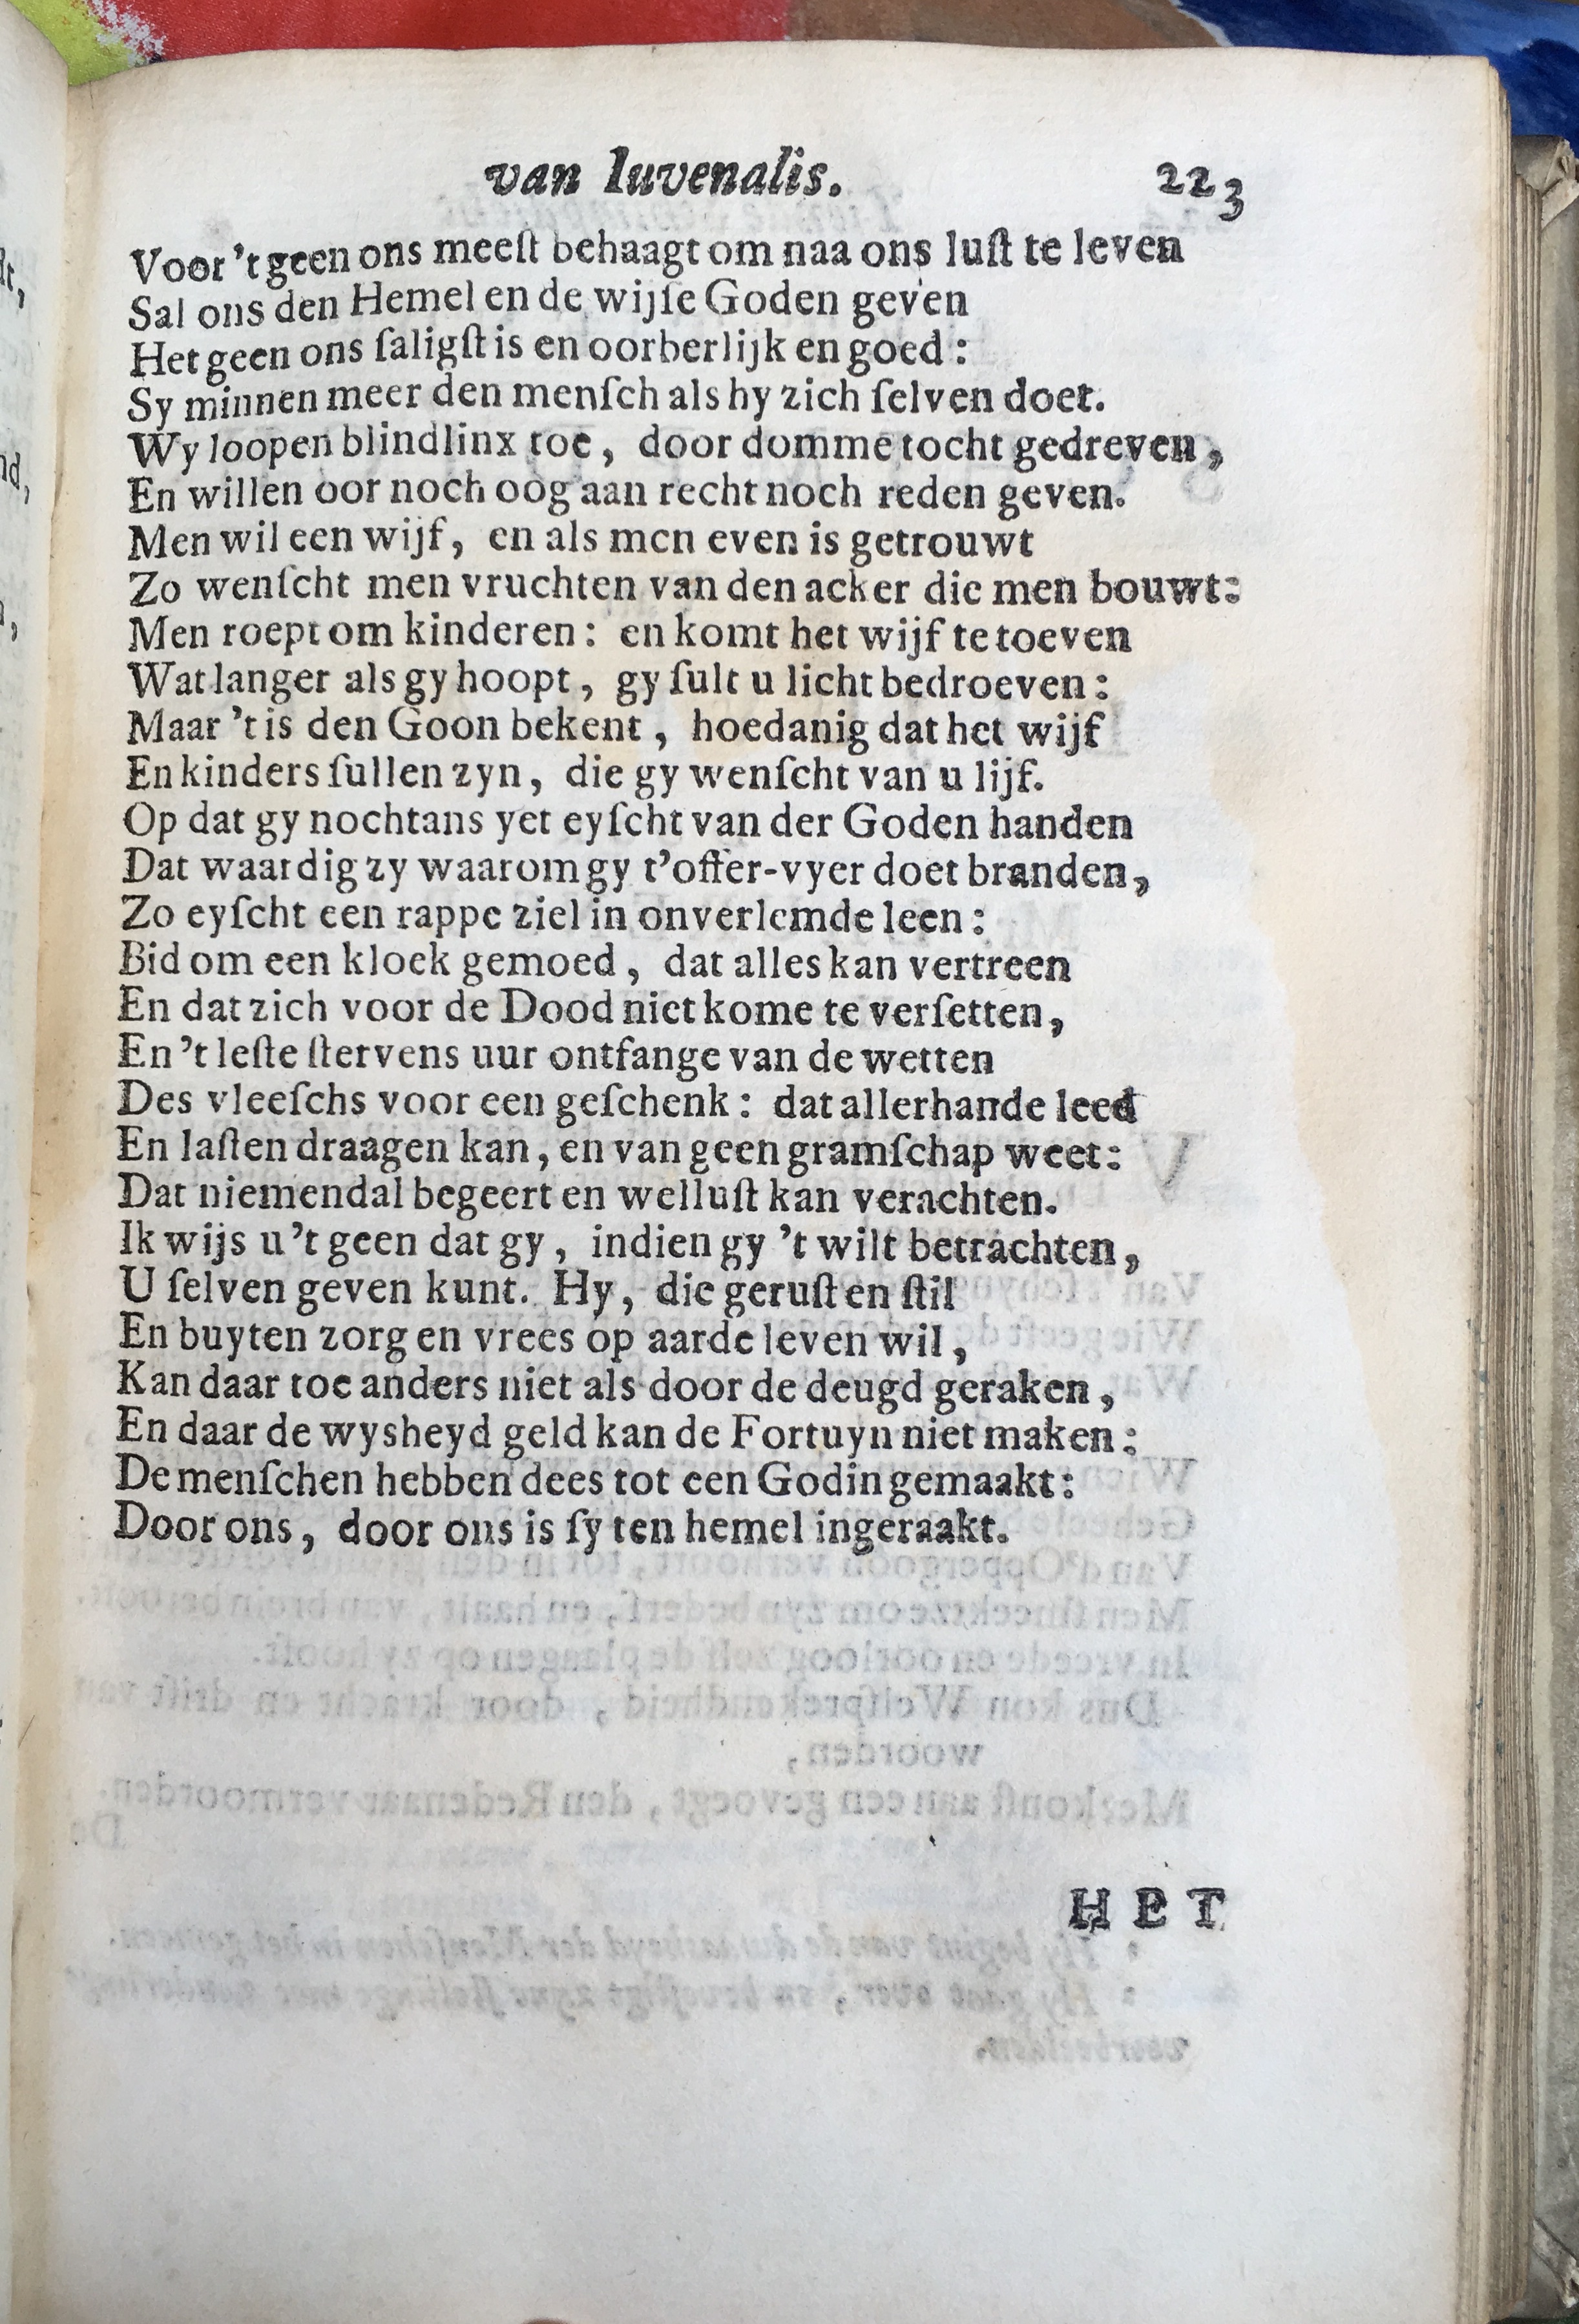 van Iuvenalis. 223
Voor 't geen ons meeſt behaagt om naa ons luſt te leven
Sal ons den Hemel en de wijſe Goden geven
Het geen ons ſaligſt is en oorberlijk en goed:
Sy minnen meer den menſch als hy zich ſelven doet.
Wy loopen blindlinx toe, door domme tocht gedreven,
En willen oor noch oog aan recht noch reden geven.
Men wil een wijf, en als men even is getrouwt
Zo wenſcht men vruchten van den acker die men bouwt:
Men roept om kinderen: en komt het wijf te toeven
Wat langer als gy hoopt, gy ſult u licht bedroeven:
Maar 't is den Goon bekent, hoedanig dat het wijf
En kinders ſullen zyn, die gy wenſcht van u lijf.
Op dat gy nochtans yet eyſcht van der Goden handen
Dat waardig zy waarom gy t'offer-vyer doet branden,
Zo eyſcht een rappe ziel in onverlemde leen:
Bid om een kloek gemoed, dat alles kan vertreen
En dat zich voor de Dood niet kome te verſetten,
En 't leſte ſtervens uur ontfange van de wetten
Des vleeſchs voor een geſchenk: dat allerhande leed
En laſten draagen kan, en van geen gramſchap weet:
Dat niemendal begeert en welluſt kan verachten.
Ik wijs u 't geen dat gy, indien gy 't wilt betrachten,
U ſelven geven kunt. Hy, die geruſt en ſtil
En buyten zorg en vrees op aarde leven wil,
Kan daar toe anders niet als door de deugd geraken,
En daar de wysheyd geld kan de Fortuyn niet maken:
De menſchen hebben dees tot een Godin gemaakt:
Door ons, door ons is ſy ten hemel ingeraakt.
HET